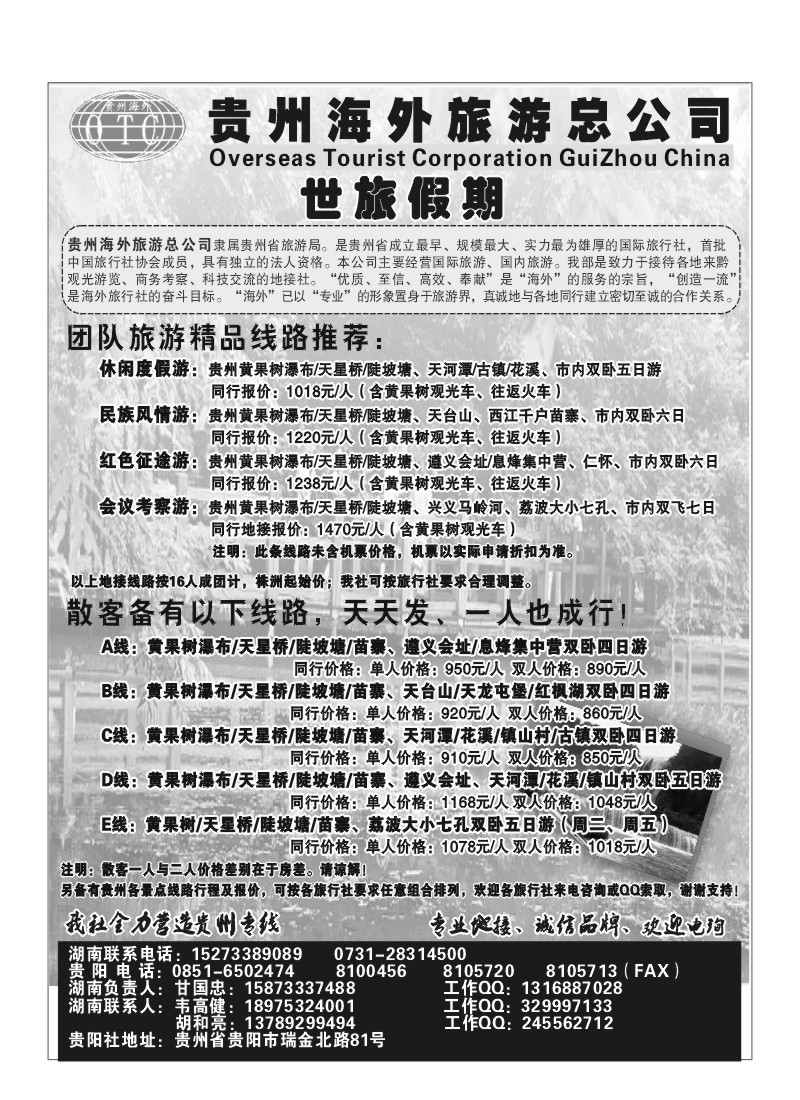 贵州海外
OTC
贵州海外旅游总公司
Overseas Tourist Corporation GuiZhou China
世旅假期
贵州海外旅游总公司隶属贵州省旅游局。是贵州省成立最早、规模最大、实力最为雄厚的国际旅行社，首批
中国旅行社协会成员，具有独立的法人资格。本公司主要经营国际旅游、国内旅游。我部是致力于接待各地来黔
观光游览、商务考察、科技交流的地接社。“优质、至信、高效、奉献”是“海外”的服务的宗旨，“创造一流”
是海外旅行社的奋斗目标。“海外”已以“专业”的形象置身于旅游界，真诚地与各地同行建立密切至诚的合作关系。
团队旅游精品线路推荐：
休闲度假游：贵州黄果树瀑布/天星桥/陡坡塘、天河潭/古镇/花溪、市内双卧五日游
同行报价：1018元/人（含黄果树观光车、往返火车）
民族风情游：贵州黄果树瀑布/天星桥/陡坡塘、天台山、西江千户苗寨、市内双卧六日
同行报价：1220元/人（含黄果树观光车、往返火车）
红色征途游：贵州黄果树瀑布/天星桥/陡坡塘、遵义会址/息烽集中营、仁怀、市内双卧六日
同行报价：1238元/人（含黄果树观光车、往返火车）
会议考察游：贵州黄果树瀑布/天星桥/陡坡塘、兴义马岭河、荔波大小七孔、市内双飞七日
同行地接报价：1470元/人（含黄果树观光车）
注明：此条线路未含机票价格，机票以实际申请折扣为准。
以上地接线路按16人成团计，株洲起始价；我社可按旅行社要求合理调整。
散客备有以下线路，天天发、一人也成行！
A线：黄果树瀑布/天星桥/陡坡塘/苗寨、遵义会址/息烽集中营双卧四日游
同行价格：单人价格：950元/人 双人价格：890元/人
B线：黄果树瀑布/天星桥/陡坡塘/苗寨、天台山/天龙屯堡/红枫湖双卧四日游
同行价格：单人价格：920元/人 双人价格：860元/人
C线：黄果树瀑布/天星桥/陡坡塘/苗寨、天河潭/花溪/镇山村/古镇双卧四日游
同行价格：单人价格：910元/人 双人价格：850元/人
D线：黄果树瀑布/天星桥/陡坡塘/苗寨、遵义会址、天河潭/花溪/镇山村双卧五日游
同行价格：单人价格：1168元/人 双人价格：1048元/人
E线：黄果树/天星桥/陡坡塘/苗寨、荔波大小七孔双卧五日游（周二、周五）
同行价格：单人价格：1078元/人 双人价格：1018元/人
注明：散客一人与二人价格差别在于房差。请谅解！
另备有贵州各景点线路行程及报价，可按各旅行社要求任意组合排列，欢迎各旅行社来电咨询或QQ索取，谢谢支持！
我社全力营造贵州专线 专业地接、诚信品牌、欢迎电询
湖南联系电话：15273389089 0731-28314500
贵 阳 电 话：0851-6502474 8100456 8105720 8105713（FAX）
湖南负责人：甘国忠：15873337488 工作QQ：1316887028
湖南联系人：韦高健：18975324001 工作QQ：329997133
胡和亮：13789299494 工作QQ：245562712
贵阳社地址：贵州省贵阳市瑞金北路81号